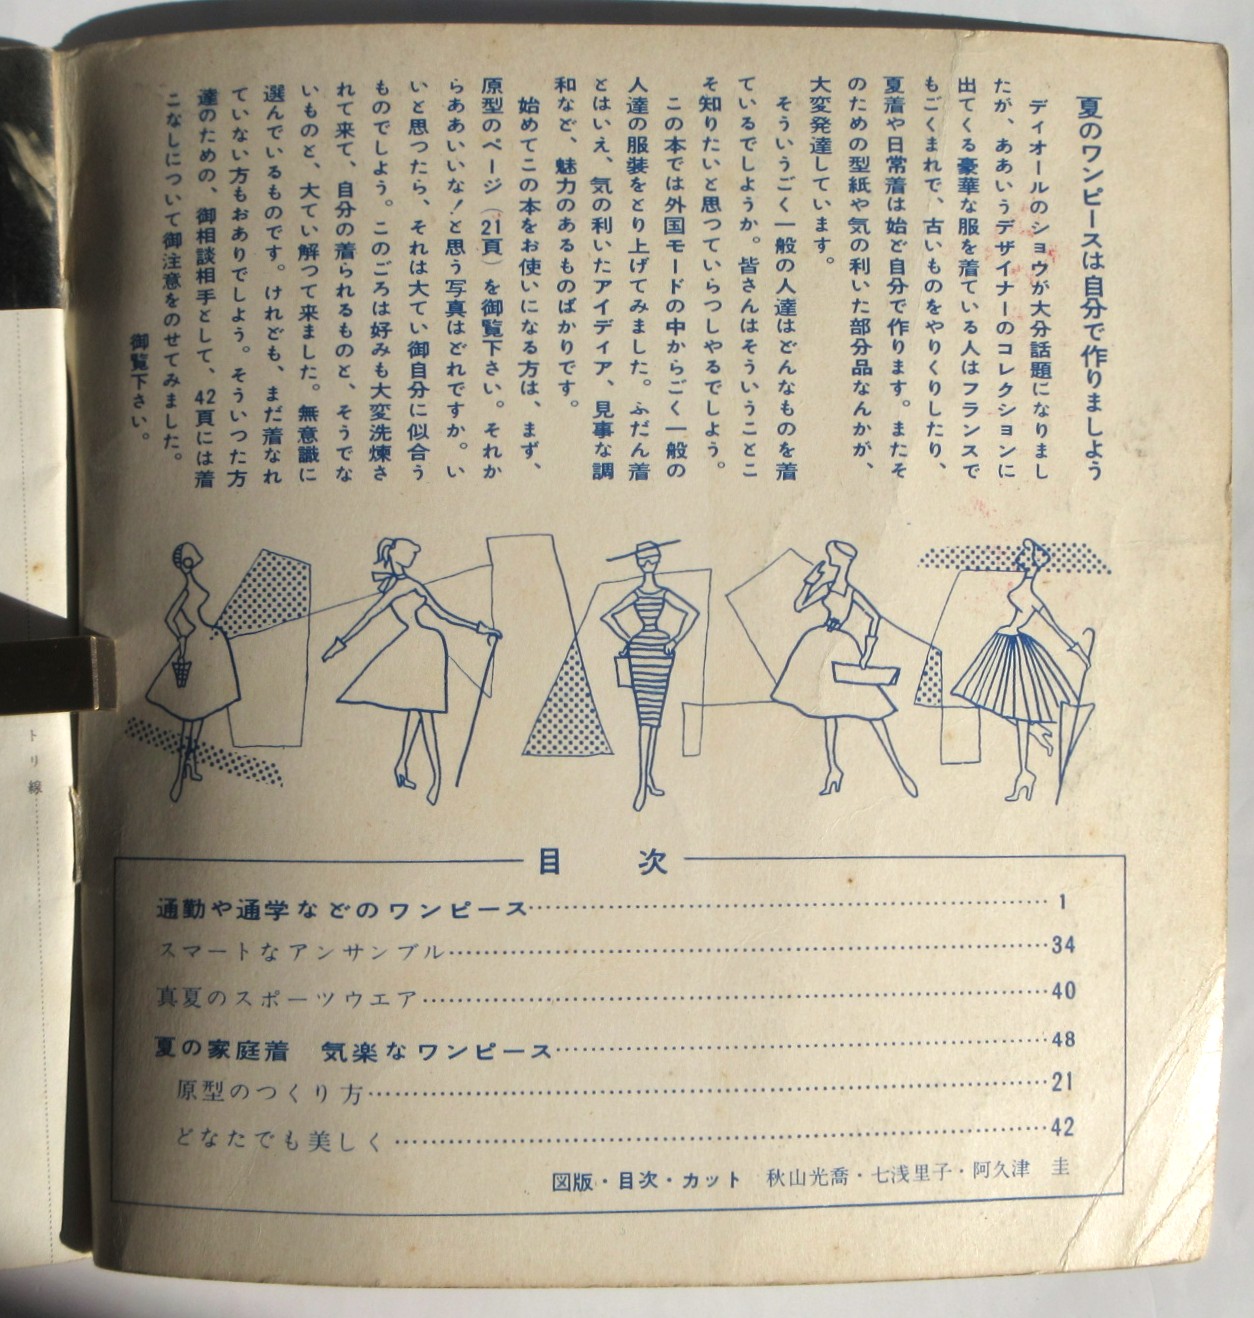 夏のワンピースは自分で作りましよう
ディオールのショウが大分話題になりまし
たが、ああいうデザイナーのコレクションに
出てくる豪華な服を着ている人はフランスで
もごくまれで、古いものをやりくりしたり、
夏着や日常着は殆ど自分で作ります。またそ
のための型紙や気の利いた部分品なんかが、
大変発達しています。
そういうごく一般の人達はどんなものを着
ているでしようか。皆さんはそういうことこ
そ知りたいと思つていらつしやるでしよう。
この本では外国モードの中からごく一般の
人達の服装をとり上げてみました。ふだん着
とはいえ、気の利いたアイディア、見事な調
和など、魅力のあるものばかりです。
始めてこの本をお使いになる方は、まず、
原型のページ（21頁）を御覧下さい。それか
らああいいな！と思う写真はどれですか。い
いと思つたら、それは大てい御自分に似合う
ものでしよう。このごろは好みも大変洗煉さ
れて来て、自分の着られるものと、そうでな
いものと、大てい解つて来ました。無意識に
選んでいるものです。けれども、まだ着なれ
ていない方もおありでしよう。そういつた方
達のための、御相談相手として、42頁には着
こなしについて御注意をのせてみました。
御覧下さい。
目 次
通勤や通学などのワンピース……1
スマートなアンサンブル……34
真夏のスポーツウエア……40
夏の家庭着　気楽なワンピース……48
原型のつくり方……21
どなたでも美しく……42
図版・目次・カット　秋山光喬・七浅里子・阿久津　圭
トリ線